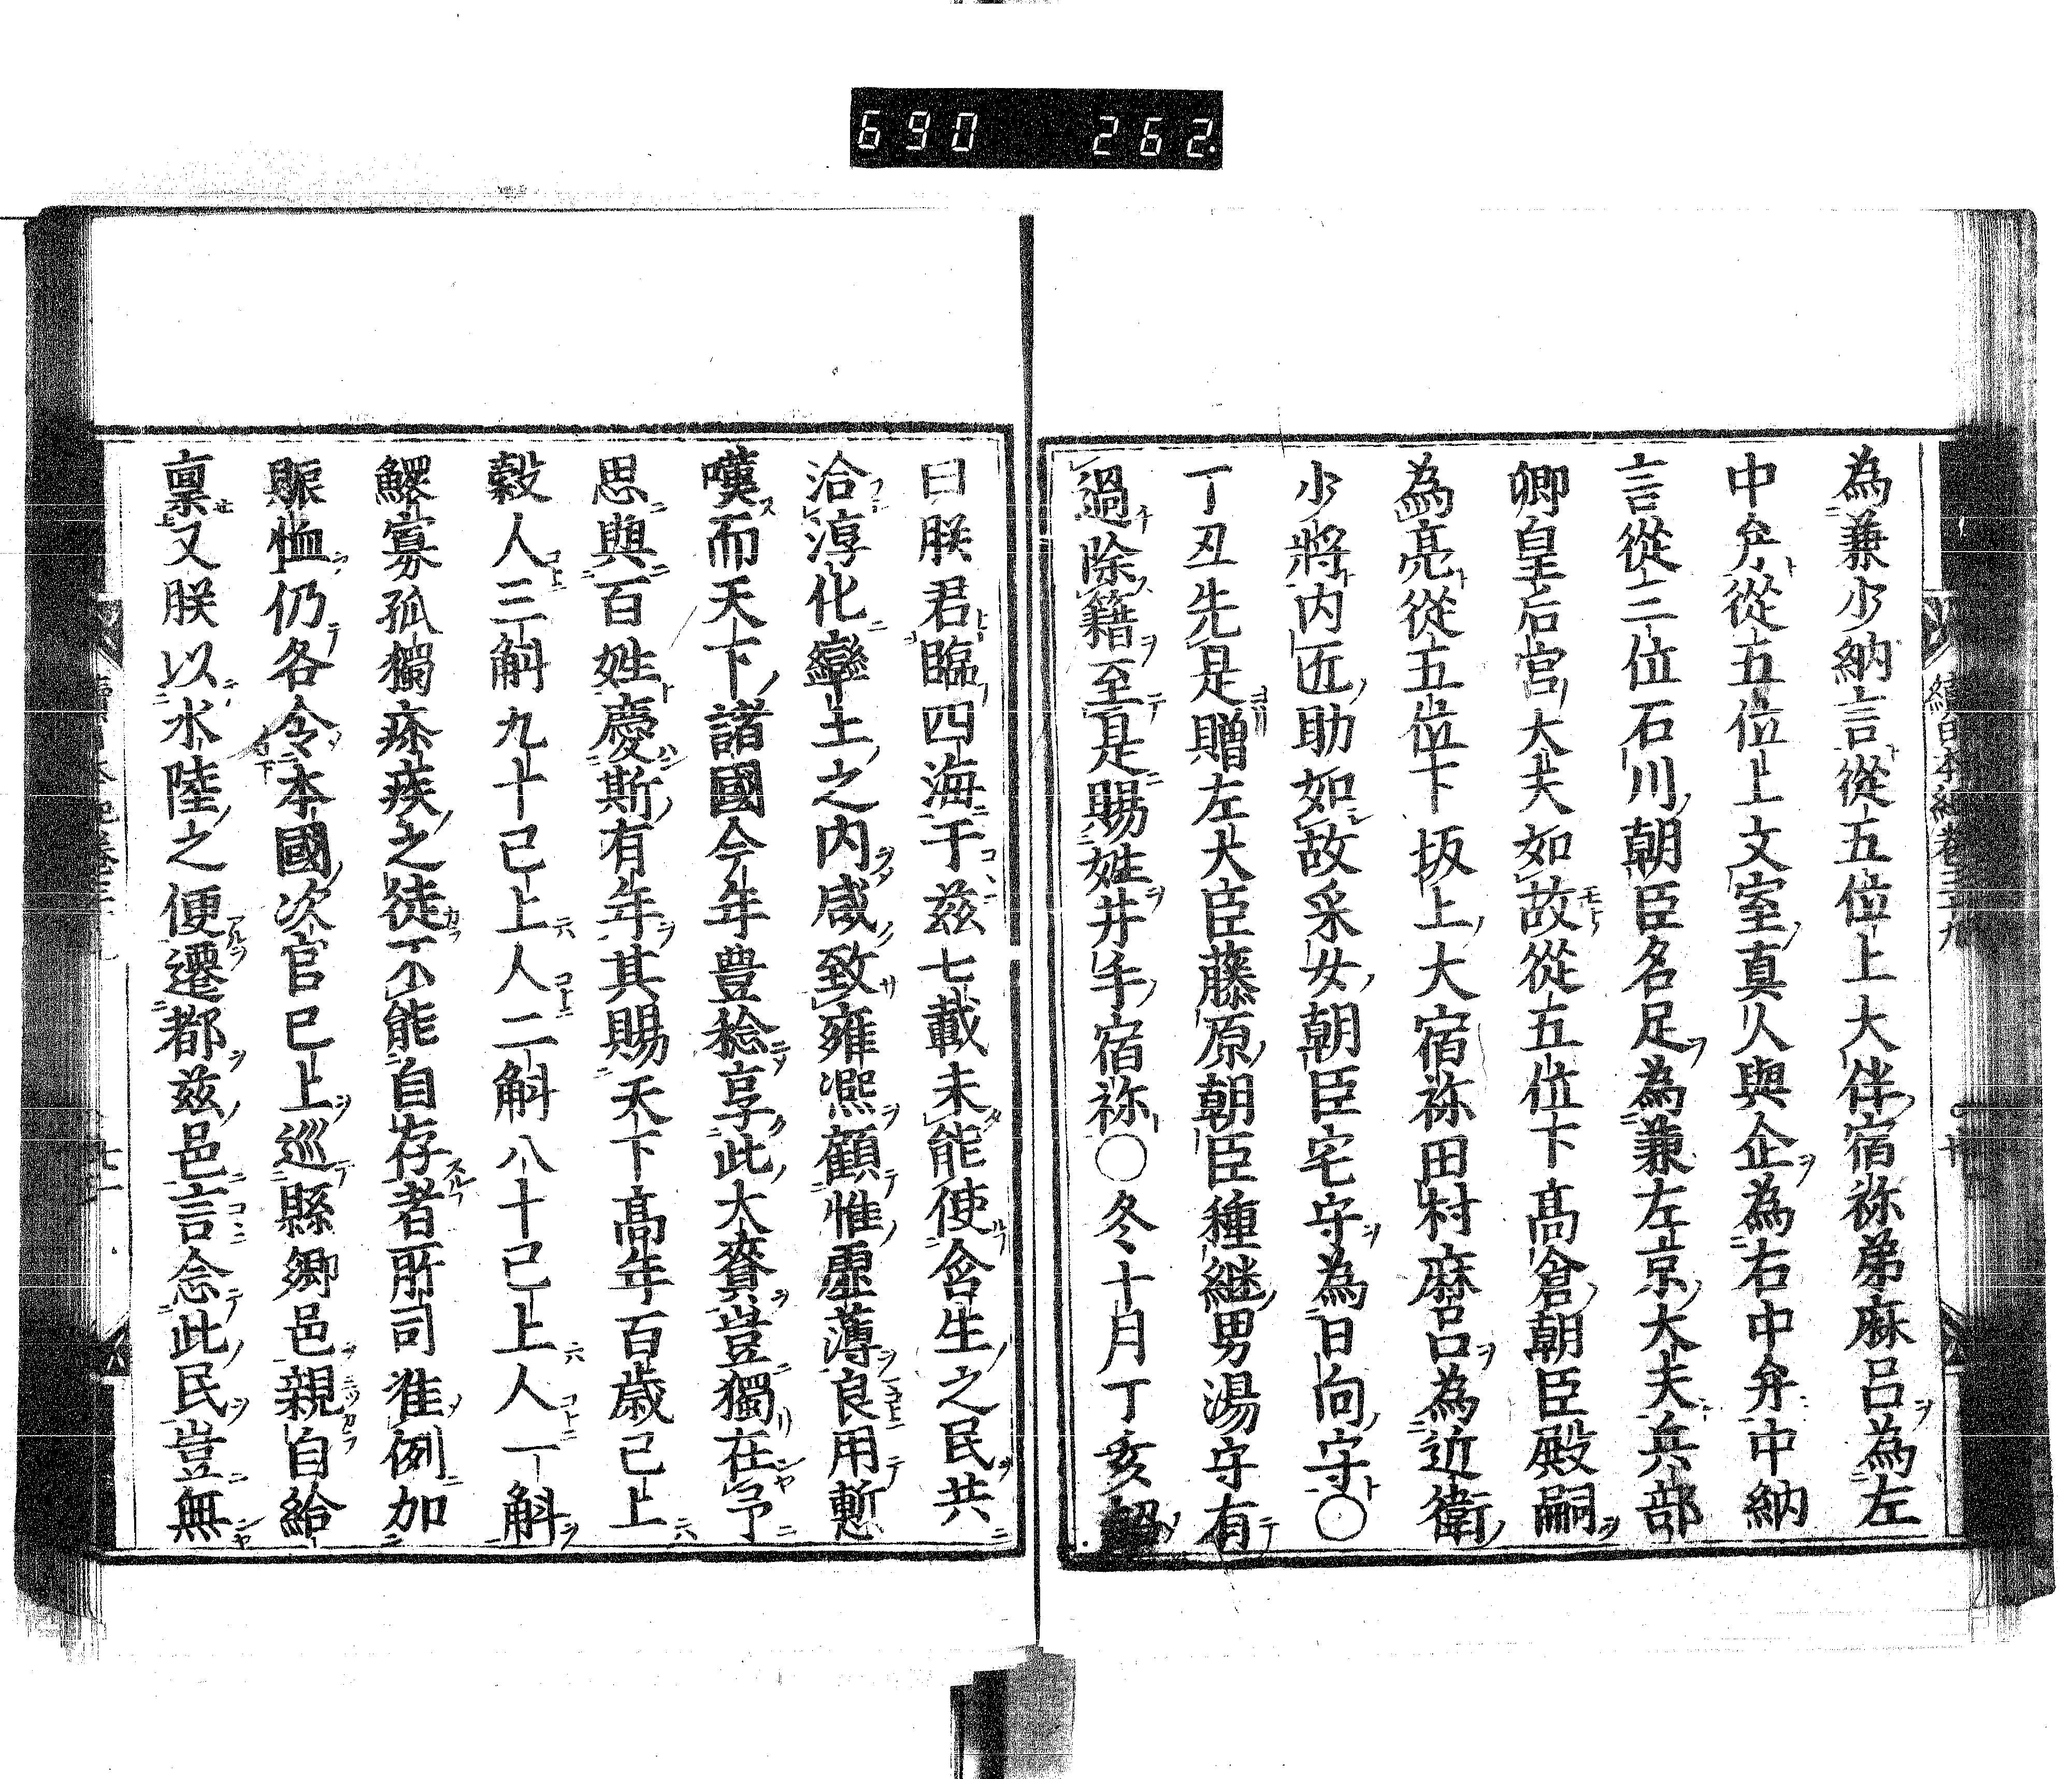 690 262
為兼少納言從五位上大伴宿祢弟麻呂為左
中弁從五位上文室真人與企為右中弁中納
言從三位石川朝臣名足為兼左京大夫兵部
卿皇后宮大夫如故從五位下髙倉朝臣殿嗣
為亮從五位下坂上大宿祢田村麻呂為近衛
少將内匠助如故采女朝臣宅守為日向守○
丁丑先是贈左大臣藤原朝臣種継男湯守有
過除籍至是賜姓井手宿祢○冬十月丁亥詔
曰朕君臨四海于茲七載未能使含生之民共
洽淳化率土之内咸致雍凞顧惟虛薄良用慙
嘆而天下諸國今年豊稔享此大賚豈獨在予
思與百姓慶斯有年其賜天下髙年百歳已上
穀人三斛九十已上人二斛八十已上人一斛
鰥寡孤獨疹疾之徒不能自存者所司准例加
賑恤仍各令本國次官已上巡縣郷邑親自給
禀又朕以水陸之便遷都茲邑言念此民豈無